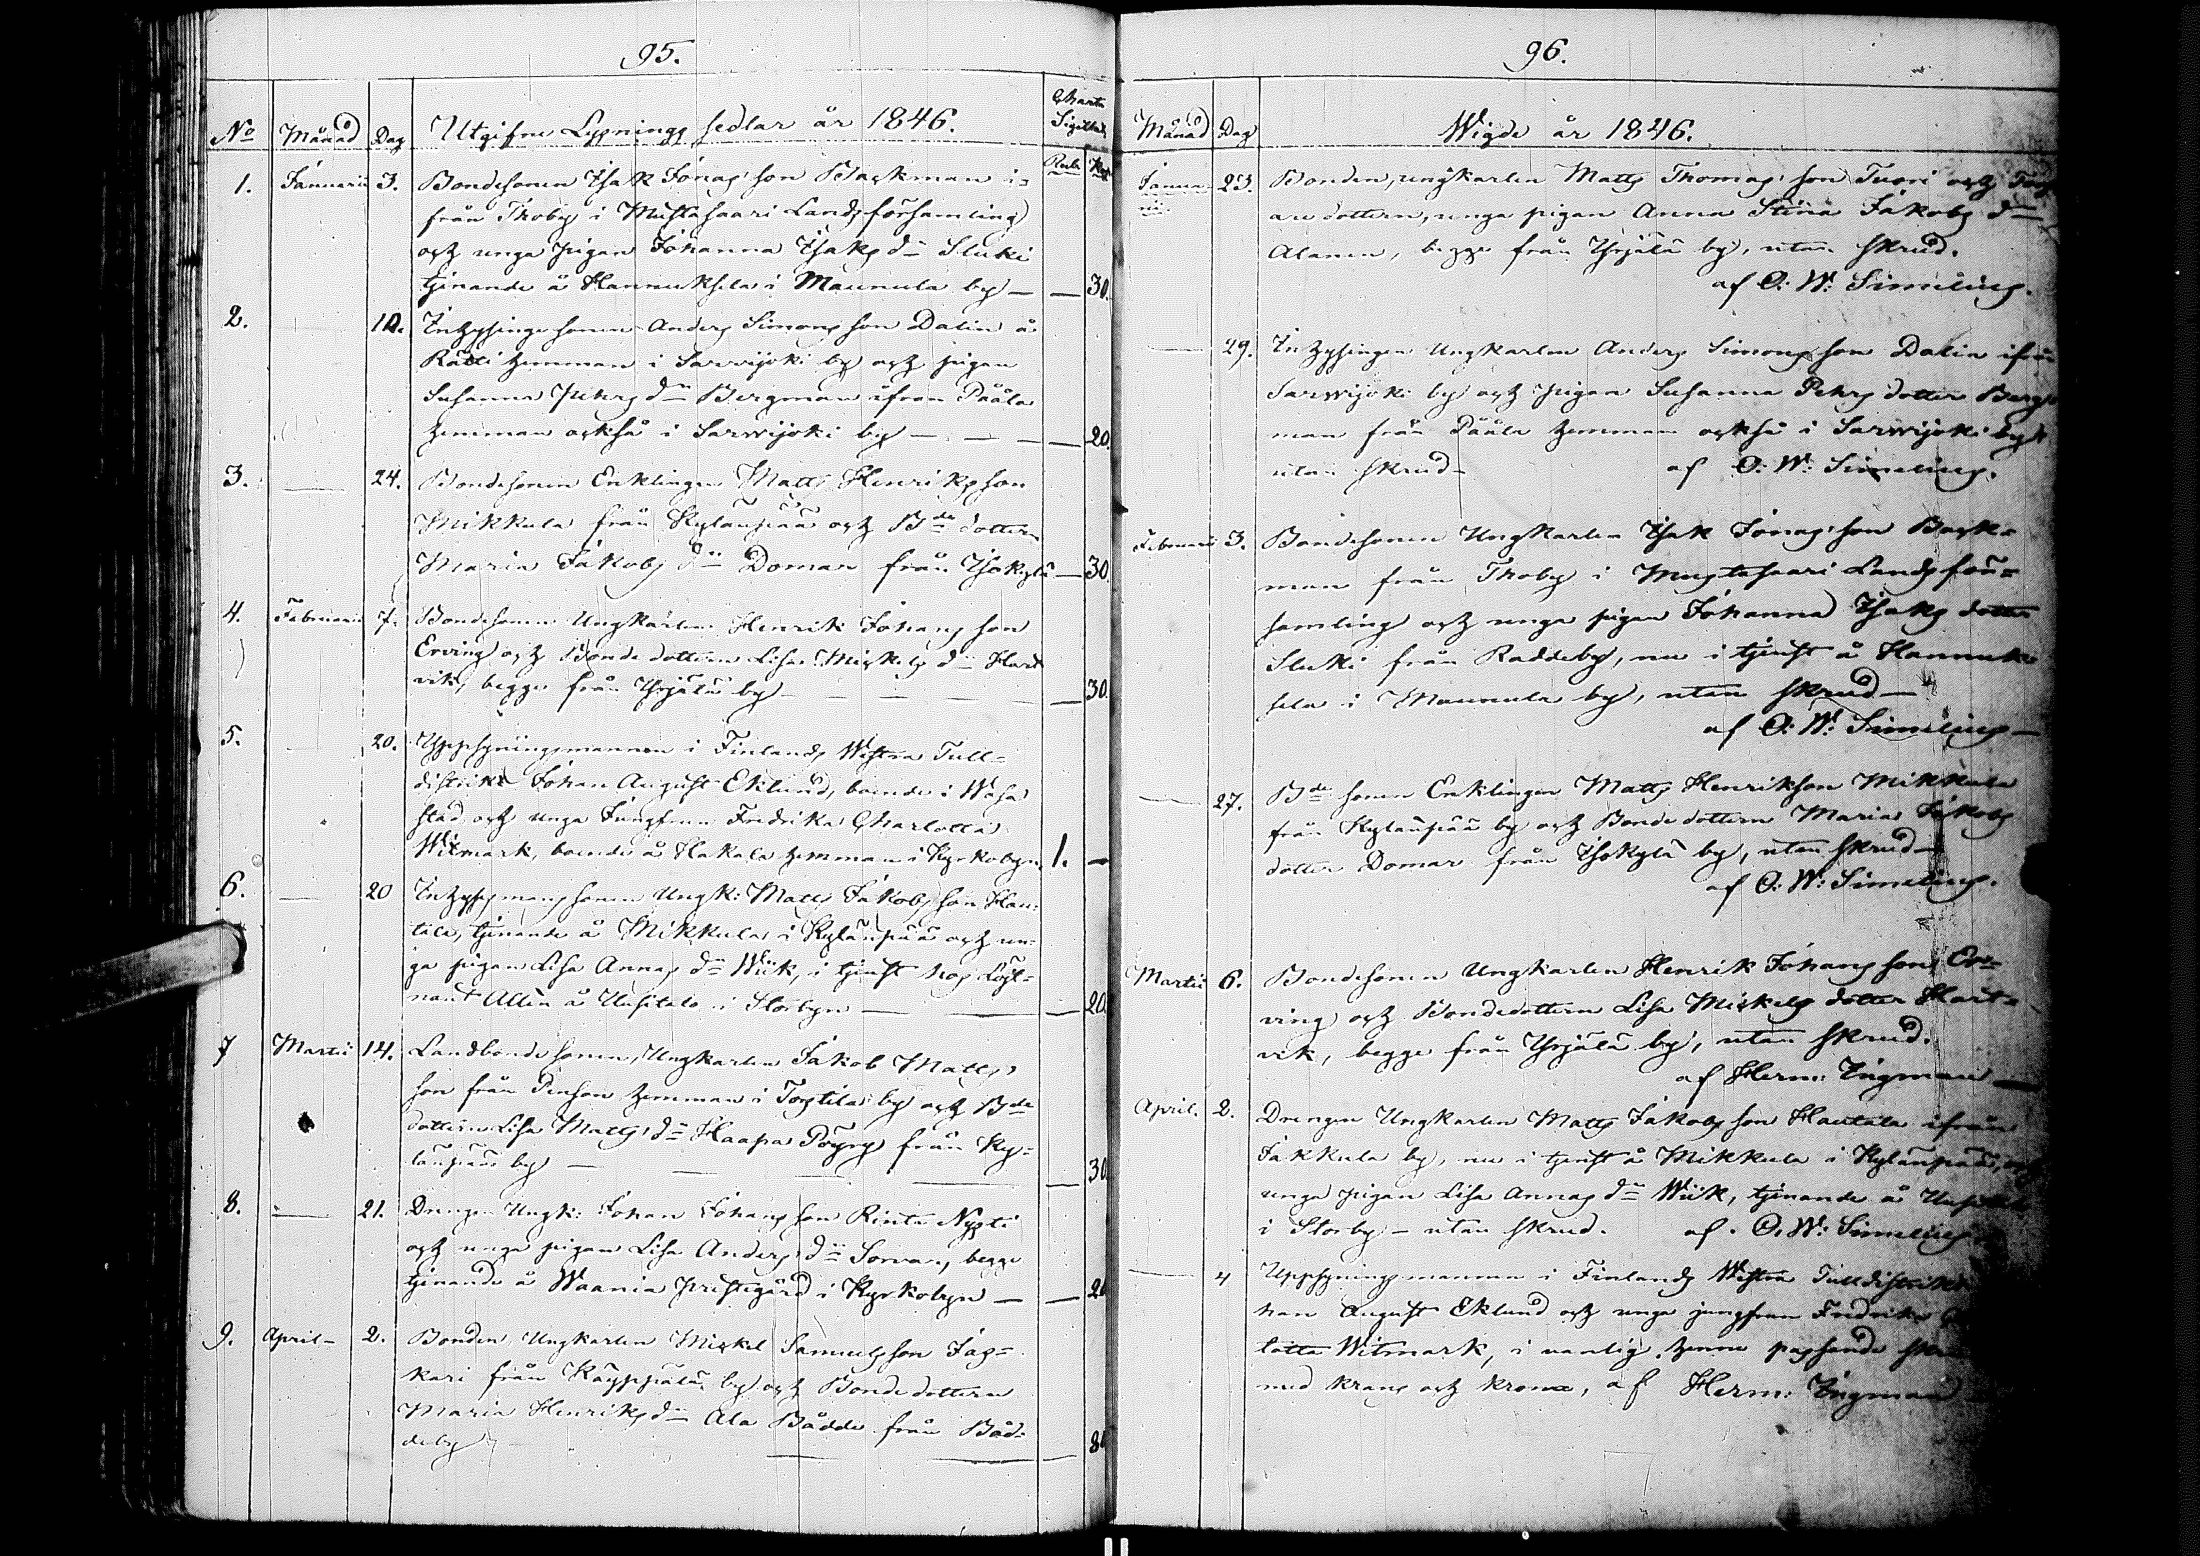 95.
No Månad Dag Utgifne Lysnings sedlar år 1846. Charta Sigillata
Rub. Kop.
1. Januarii 3. Bondesonen Isak Jonas son Backman i-
från Thoby i Mustasaari Lands församling
och unga pigan Johanna Isaks dr Sluki
tjenande å Hannuksela i Maunula by — — 30.
2. 10. Inhysinge sonen Anders Simons son Dalin å
Rätti hemman i Sarwijoki by och pigan
Susanna Pehrs dr Bergman ifrån Pääla
hemman också i Sarwijoki by — — — — 20.
3. — 24. Bondesonen Enklingen Matts Henriks son
Mikkula från Kylänpää och Bde dottern
Maria Jakobs dr Domar från Isokylä — 30.
4. Februarii 7. Bondesonen Ungkarlen Henrik Johans son
Erving och Bonde dottern Lisa Mickels dr Hart
vik, begge från Yrjälä by — — — — 30.
5. 20. Uppsyningsmannen i Finlands Westra Tull-
distrikt Johan August Eklund, boende i Wasa
stad och unga Jungfrun Fredrika Charlotta
Witmark, boende å Hakala hemman i Kyrkobyn. 1. —
6. — 20 Inhysesmans sonen Ungk: Matts Jakobs son Hau-
tala, tjenande å Mikkula i Kylänpää och un-
ga pigan Lisa Annas dr Wiik, i tjenst hos Löjt-
nant Allén å Uusitalo i Storbyn — — — 20.
7 Martii 14. Landbonde sonen, Ungkarlen Jakob Matts
son från Penson hemman i Tostila by och Bde
dottern Lisa Matts dr Haapa Pöyry från Ky-
länpää by — — — — 30
8. — 21. Drengen Ungk: Johan Johans son Rinta Nysti
och unga pigan Lisa Anders dr Sorvar, begge
tjenande å Waania prestgård i Kyrkobyn — — 20
9. April — 2. Bonden Ungkarlen Mickel Samuels son Jás-
kari från Käyppälä by och Bonde dottern
Maria Henriks dr Ala Bådde från Båd-
deby — — — 30
96.
Månad Dag Wigde år 1846.
Janua- 23. Bonden, ungkarlen Matts Thomas son Tuori och
rii. dottern, unga pigan Anna Stina Jakobs dr
Alanen, begge från Yrjälä by, utan skrud.
af O: W: Simelius.
— 29. Inhysingen Ungkarlen Anders Simons son Dalin ifrån
Sarwijoki by och pigan Susanna Pehrs dotter Berg-
man från Pääla hemman också i Sarwijoki by
utan skrud — af O: W: Simelius.
Februarii 3. Bondesonen Ungkarlen Isak Jonas son Back-
man från Thoby i Mustasaari Lands för-
samling och unga pigan Johanna Isaks dotter
Sluki från Raddeby, nu i tjenst å Hannuk-
sela i Maunula by, utan skrud —
af O: W: Simelius —
— 27. Bde sonen Enklingen Matts Henrikson Mikkula
från Kylänpää by och Bonde dottern Maria Jakobs
dotter Domar från Isokylä by, utan skrud —
af O: W: Simelius.
Martii 6. Bondesonen Ungkarlen Henrik Johans son Er-
ving och Bondedottern Lisa Mickels dotter Hart-
vik, begge från Yrjälä by, utan skrud.
af Herm: Ingman —
April. 2. Drengen Ungkarlen Matts Jakobs son Hautala ifrån
Jakkula by, nu i tjenst å Mikkula i Kylänpää, och
unga pigan Lisa Annas dr Wiik, tjenande å
i Storby — utan skrud. af. O. W: Simelius
— 4 Uppsynings mannen i Finlands Westra Tulldistrikt
han August Eklund och unga jungfrun Fredrika
lotta Witmark, i vanlig, henne passande
med krans och krona, af Herm: Ingman